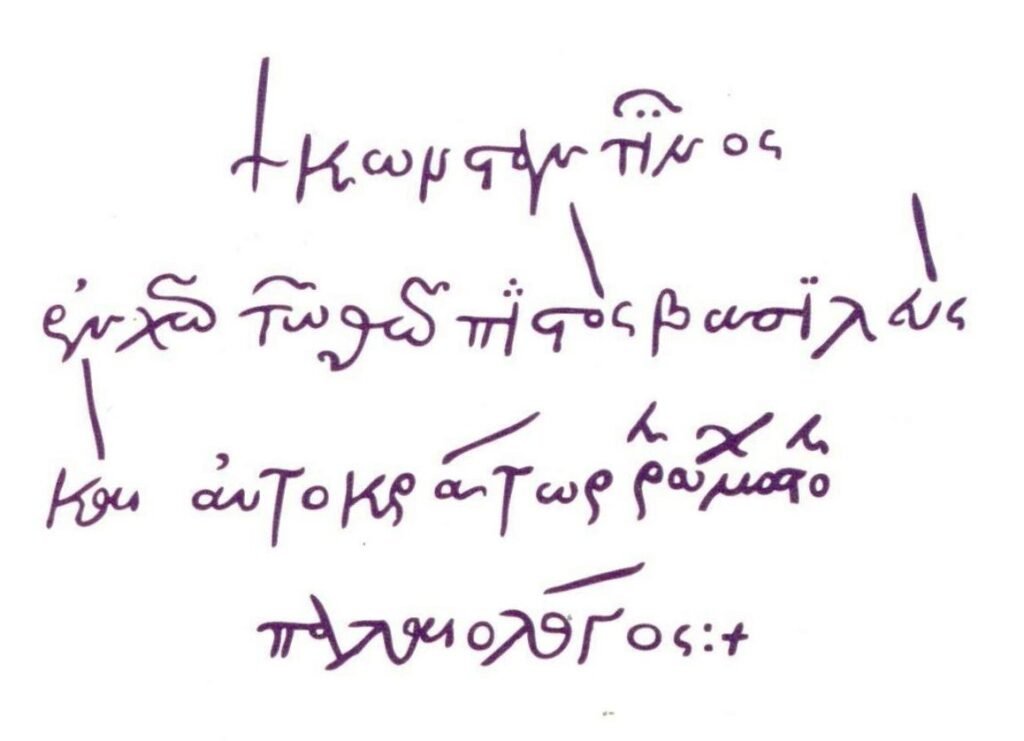 + κωνσταντῖνος
ἐν χῶ τῶ θῶ πϊστὸς βασϊλεὺς
καὶ αὐτοκράτωρ
παλαιολόγος:+